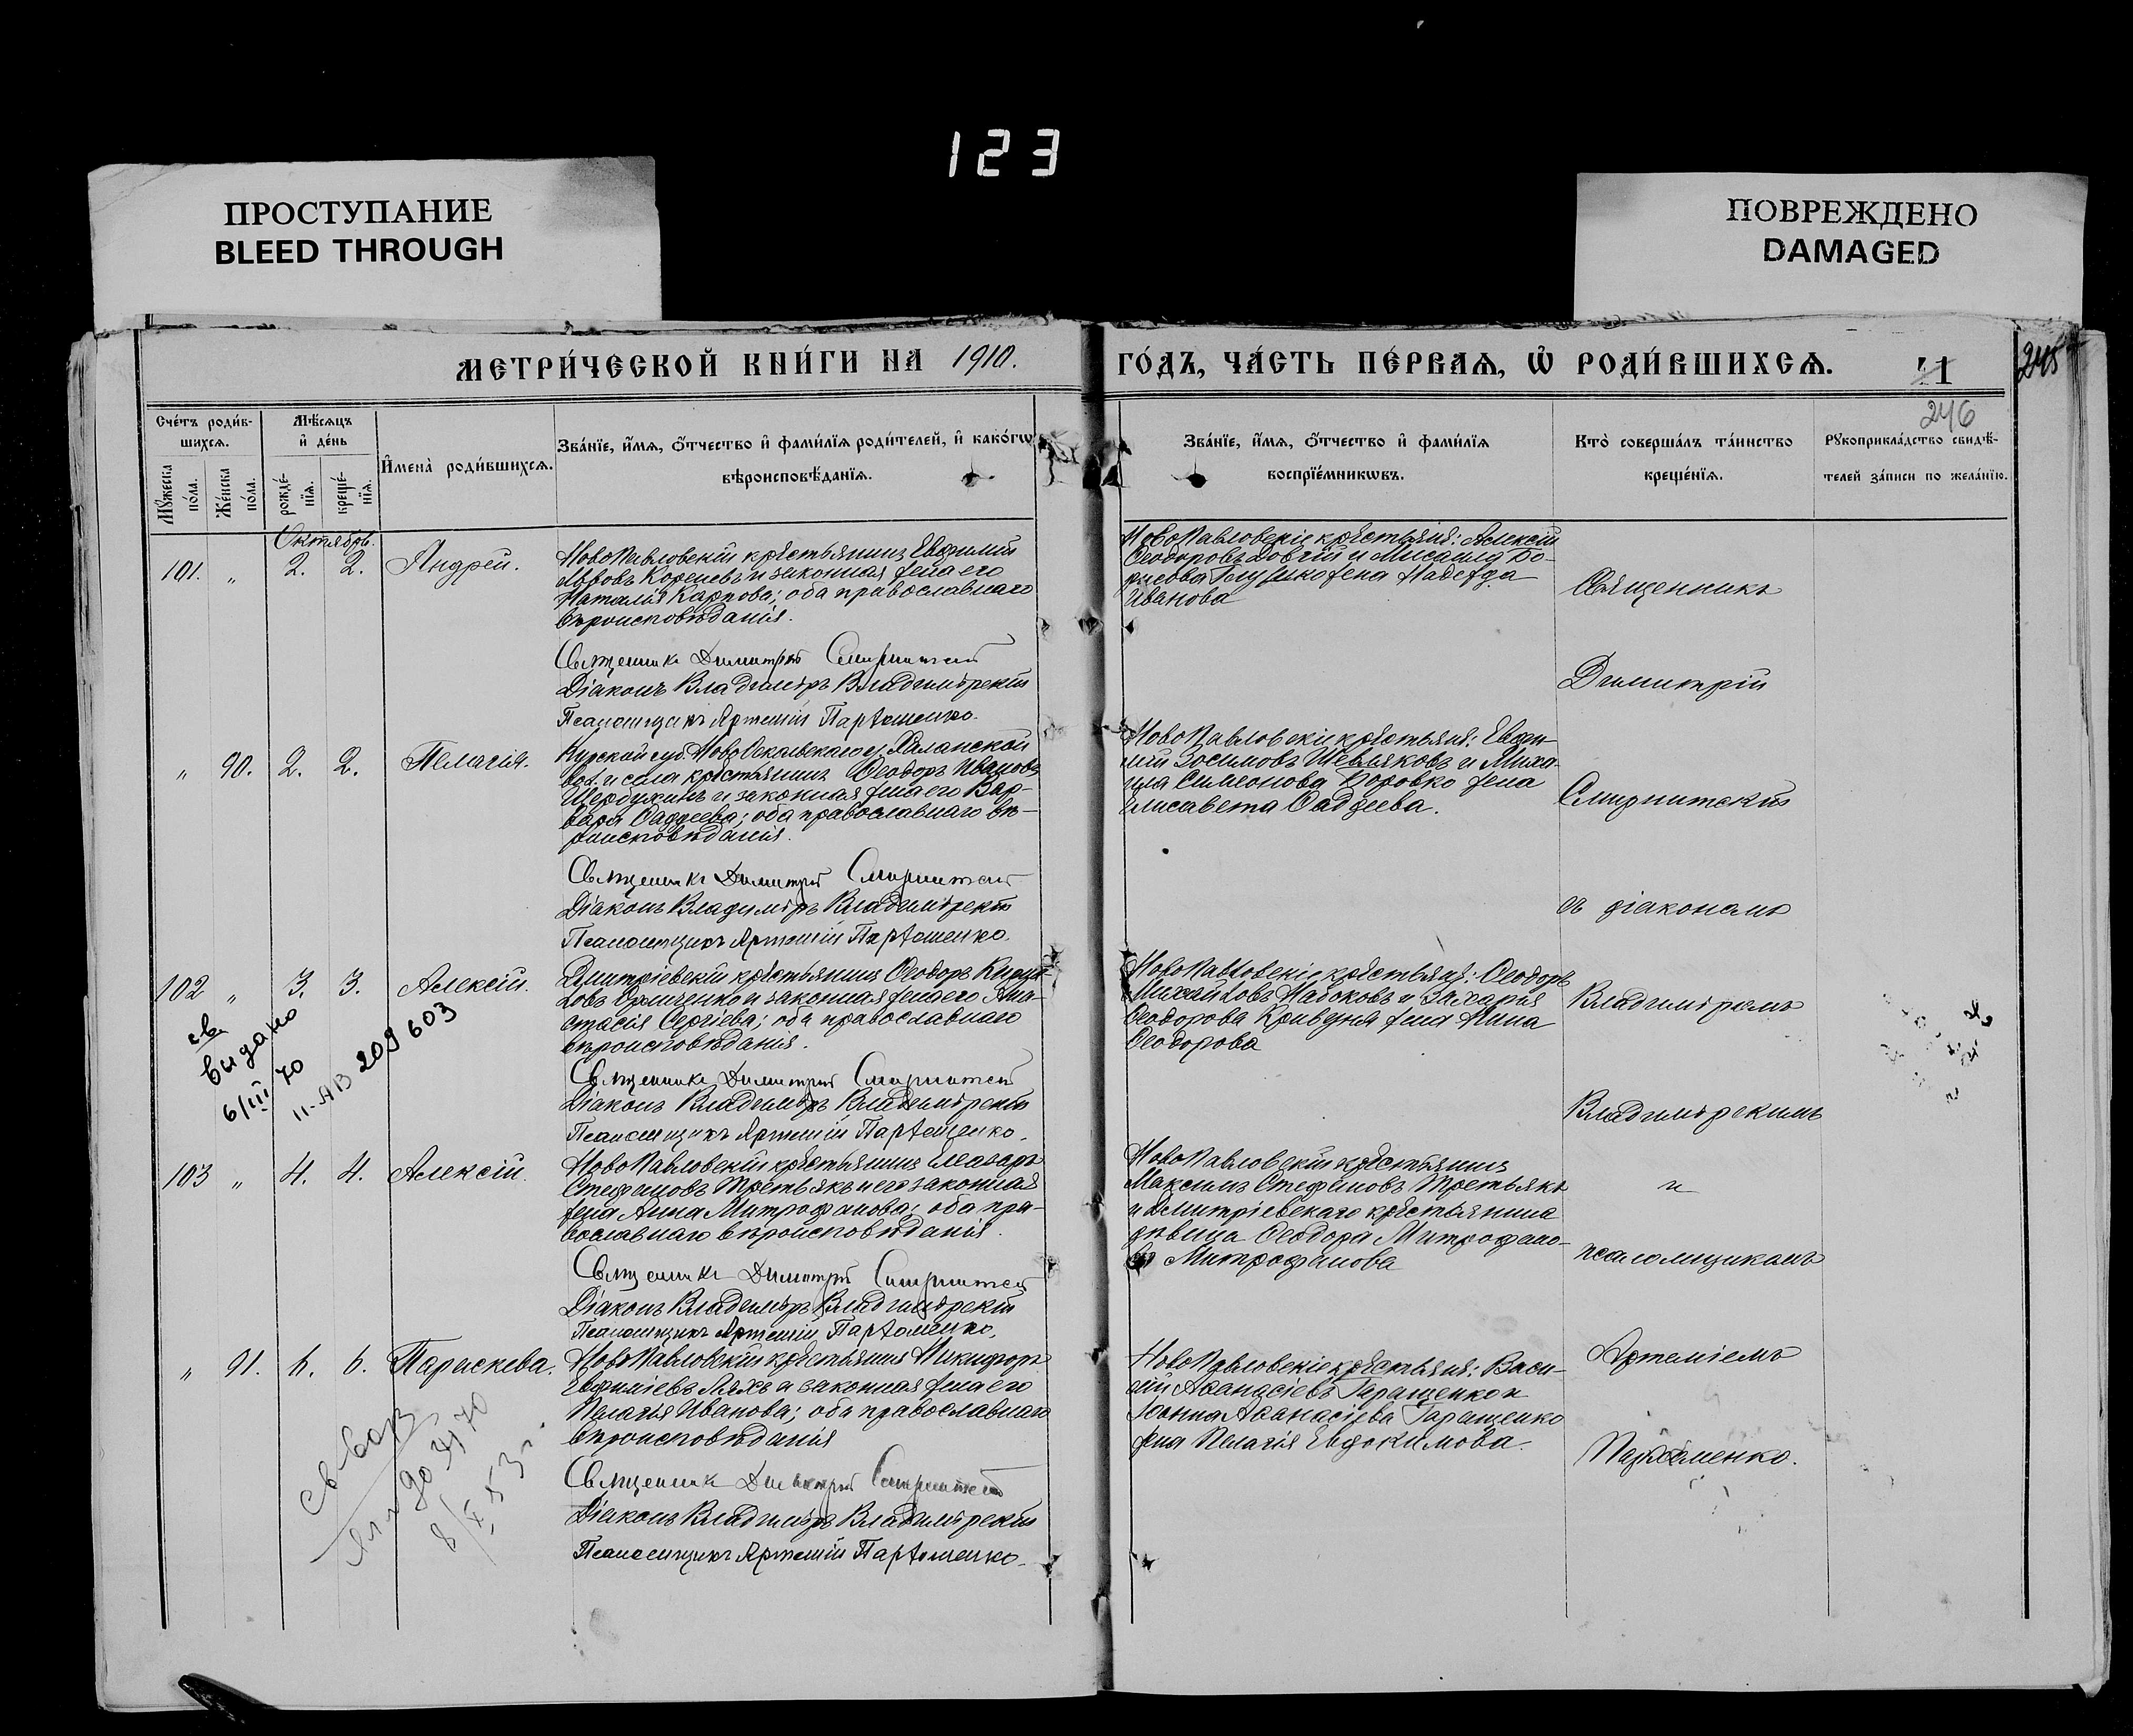 123
ПРОСТУПАНИЕ
BLEED THROUGH
ПОВРЕЖДЕНО
DAMAGED
МЕТРИ́ЧЕСКОЙ КНИ́ГИ НА 1910.
ГО́ДЪ, ЧА́СТЬ ПЕ́РВАЯ, Ѡ РОДИ́ВШИХСЯ.
41
245
246
Сче́тъ роди́в-
шихся.
Мѣ́сяцъ
и де́нь
Мꙋ́жеска
по́ла.
Же́нска
по́ла.
рожде́-
нїя.
креще́-
нїя.
И́мена̀ роди́вшихся.
Зва́нїе, и́мя, о́тчество и фами́лїя роди́телей, и како́гѡ
вѣроисповѣ́данїя.
Зва́нїе, и́мя, о́тчество и фами́лїя
воспрїе́мникѡвъ.
Кто̀ соверша́лъ та́инство
креще́нїя.
Рꙋкоприкла́дство свидѣ́-
телей за́писи по жела́нїю.
Октябрь.
101. " 2. 2. Андрей.
НовоПавловскій крестьянинъ Евѳимій
Львовъ Кореневъ и законная жена его
Наталія Карпова; оба православнаго
вѣроисповѣданія.
Священникъ Димитрій Смирнитскій
Діаконъ Владиміръ Владимірскій
Псаломщикъ Артемій Парѳоменко.
НовоПавловскіе крестьяне: Алексій
Ѳеодоровъ Довгій и Мисаила Бо-
рисова жена Надежда
Иванова
" 90. 2. 2. Пелагія.
Курской губ. НовоОскольскаго у. Халанской
вол. и села крестьянинъ Ѳеодоръ Ивановъ
Щербининъ и законная жена его Вар-
вара Ѳаддеева; оба православнаго вѣ-
роисповѣданія.
Священникъ Димитрій Смирнитскій
Діаконъ Владиміръ Владимірскій
Псаломщикъ Артемій Парѳоменко.
НовоПавловскіе крестьяне: Евѳи-
мій Зосимовъ Шевляковъ и Миха-
ила Симеонова Боровко жена
Елисавета Ѳаддеева.
102 " 3. 3. Алексій.
Дмитріевскій крестьянинъ Ѳеодоръ
и законная жена его Ана-
стасія Сергіева; оба православнаго
вѣроисповѣданія.
Священникъ Димитрій Смирнитскій
Діаконъ Владиміръ Владимірскій
Псаломщикъ Артемій Парѳоменко.
НовоПавловскіе крестьяне: Ѳеодоръ
Михайловъ Набоковъ и Захарія
Ѳеодорова Криведня жена Анна
Ѳеодорова
св
видано
6/III 70
II-ЯВ 209603
103 " 4. 4. Алексій.
НовоПавловскій крестьянинъ Елеазаръ
Стефановъ Третьякъ и его законная
жена Анна Митрофанова; оба пра-
вославнаго вѣроисповѣданія.
Священникъ Димитрій Смирнитскій
Діаконъ Владиміръ Владимірскій
Псаломщикъ Артемій Парѳоменко.
НовоПавловскій крестьянинъ
Максимъ Стефановъ Третьякъ
и Дмитріевскаго крестьянина
дѣвица Ѳеодора Митрофано-
ва Митрофанова
" 91. 6. 6. Параскева.
НовоПавловскій крестьянинъ Никифоръ
Евфиміевъ Ляхъ и законная жена его
Пелагія Иванова; оба православнаго
вѣроисповѣданія
Священникъ Димитрій Смирнитскій
Діаконъ Владиміръ Владимірскій
Псаломщикъ Артемій Парѳоменко.
НовоПавловскіе крестьяне: Васи-
лій Аѳанасіевъ Гаращенко и
Іоанна Аѳанасіева Гаращенко
жена Пелагія Евдокимова.
Священникъ
Димитрій
Смирнитскій
съ діакономъ
Владиміромъ
Владимірскимъ
и
псаломщикомъ
Артеміемъ
Парѳоменко.